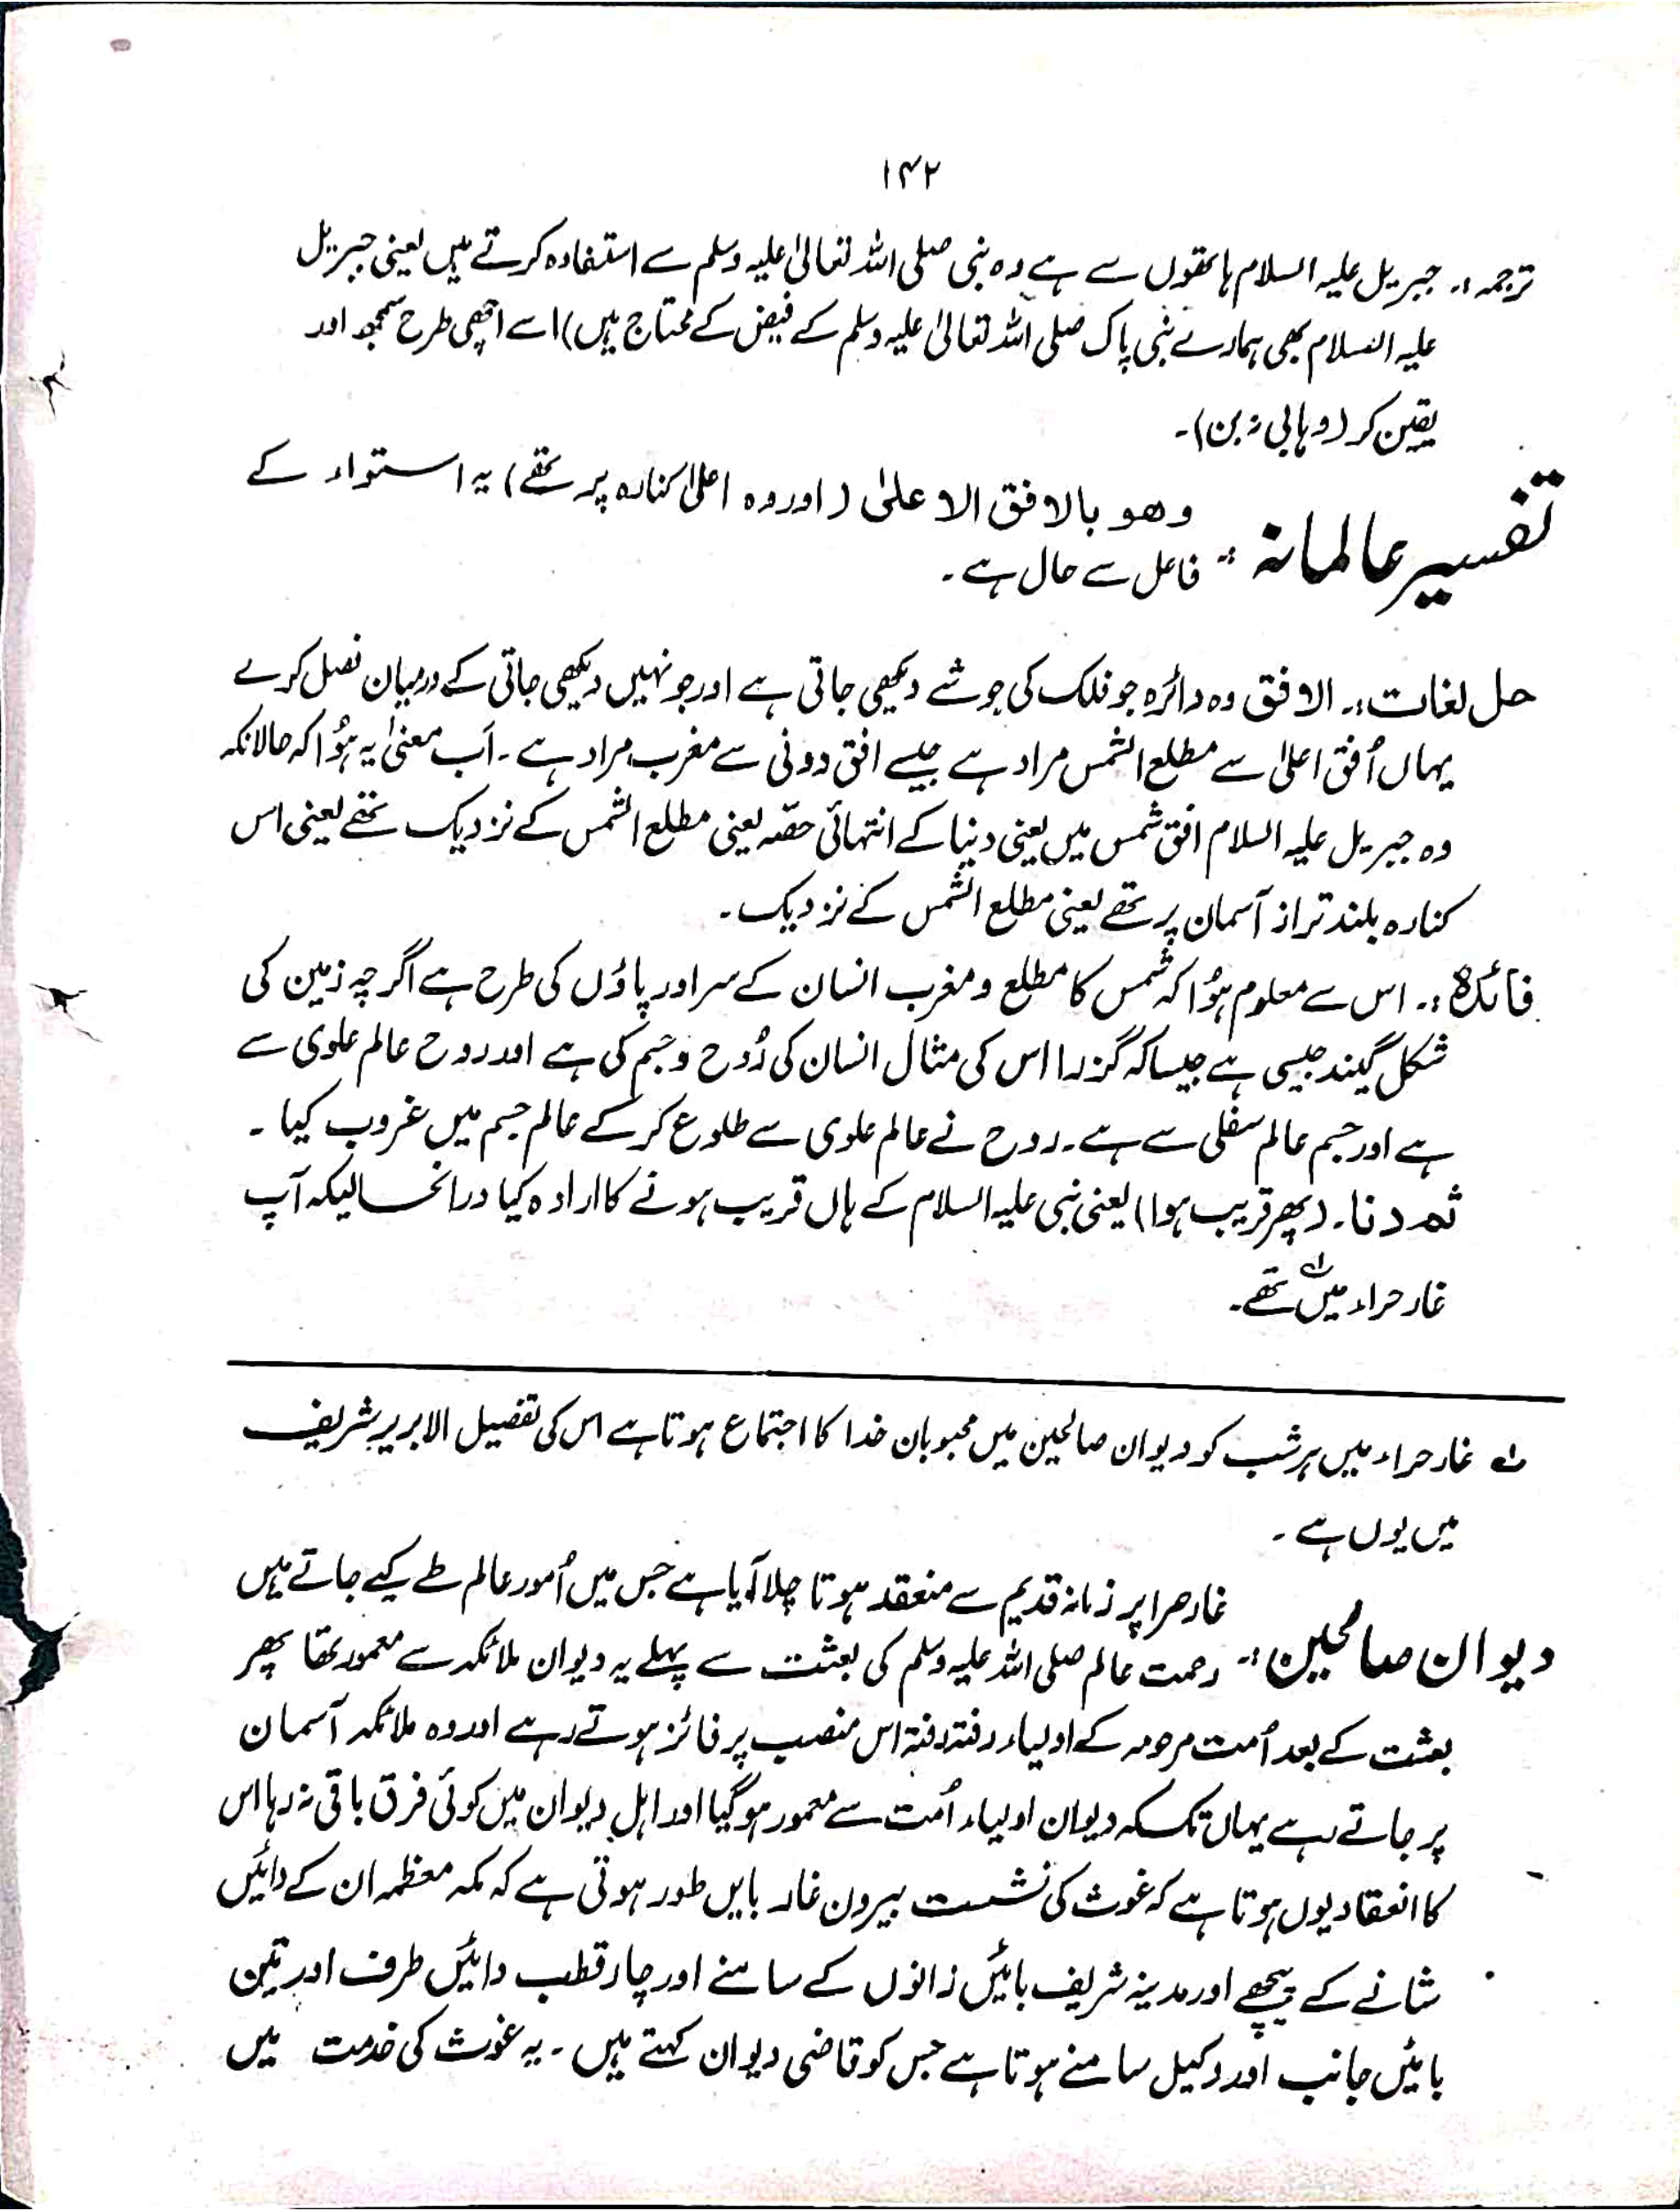 ۱۴۲
ترجمہ:۔ جبریل علیہ السلام ہاتھوں سے ہے وہ نبی صلی اللہ تعالیٰ علیہ وسلم سے استفادہ کرتے ہیں یعنی جبریل
علیہ السلام بھی ہمارے نبی پاک صلی اللہ تعالیٰ علیہ وسلم کے فیض کے محتاج ہیں) اسے اچھی طرح سمجھ اور
یقین کر (وہابی نہ بن)۔
تفسیر عالمانہ :۔ وھو بالافق الاعلیٰ (اور وہ اعلیٰ کنارہ پر تھے) یہ استواء کے
فاعل سے حال ہے۔
حل لغات:۔ الافق وہ دائرہ جو فلک کی جو شے دیکھی جاتی ہے اور جو نہیں دیکھی جاتی کے درمیان فصل کرے
یہاں اُفق اعلیٰ سے مطلع الشمس مراد ہے جیسے افق دونی سے مغرب مراد ہے۔ اَب معنیٰ یہ ہُوا کہ حالانکہ
وہ جبریل علیہ السلام افق شمس میں یعنی دنیا کے انتہائی حصّہ یعنی مطلع الشمس کے نزدیک تھے یعنی اس
کنارہ بلند تر از آسمان پر تھے یعنی مطلع الشمس کے نزدیک۔
فائدہ:۔ اس سے معلوم ہُوا کہ شمس کا مطلع و مغرب انسان کے سر اور پاؤں کی طرح ہے اگرچہ زمین کی
شکل گیند جیسی ہے جیسا کہ گزرا اس کی مثال انسان کی رُوح و جسم کی ہے اور روح عالم علوی سے
ہے اور جسم عالم سفلی سے ہے۔ روح نے عالم علوی سے طلوع کر کے عالم جسم میں غروب کیا۔
ثم دنا۔ (پھر قریب ہوا) یعنی نبی علیہ السلام کے ہاں قریب ہونے کا ارادہ کیا درانحالیکہ آپ
غار حراء میں ؎ تھے۔
؎ غار حراء میں ہر شب کو دیوان صالحین میں محبوبان خدا کا اجتماع ہوتا ہے اس کی تفصیل الابریز شریف
میں یوں ہے۔
دیوان صالحین :۔ غار حرا پر زمانہ قدیم سے منعقد ہوتا چلا آیا ہے جس میں اُمور عالم طے کیے جاتے ہیں
رحمت عالم صلی اللہ علیہ وسلم کی بعثت سے پہلے یہ دیوان ملائکہ سے معمور تھا پھر
بعثت کے بعد اُمت مرحومہ کے اولیاء رفتہ رفتہ اس منصب پر فائز ہوتے رہے اور وہ ملائکہ آسمان
پر جاتے رہے یہاں تک کہ دیوان اولیاء اُمت سے معمور ہو گیا اور اہل دیوان میں کوئی فرق باقی نہ رہا اس
کا انعقاد یوں ہوتا ہے کہ غوث کی نشست بیرون غار بایں طور ہوتی ہے کہ مکہ معظمہ ان کے دائیں
شانے کے پیچھے اور مدینہ شریف بائیں زانوں کے سامنے اور چار قطب دائیں طرف اور تین
بائیں جانب اور وکیل سامنے ہوتا ہے جس کو قاضی دیوان کہتے ہیں۔ یہ غوث کی خدمت میں